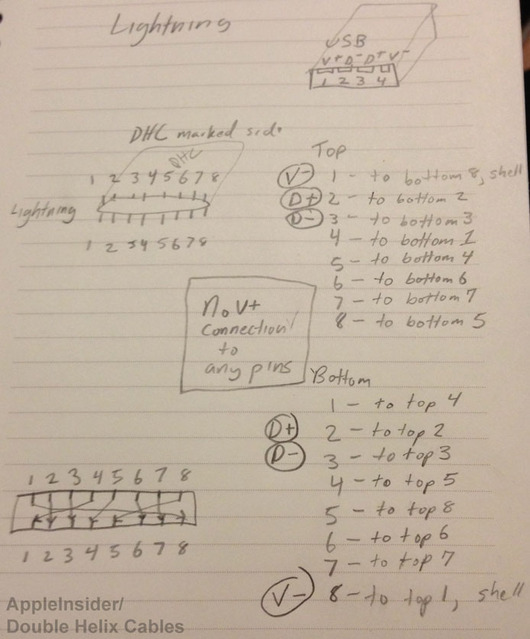 Lightning
USB
V+ D- D+ V-
1 2 3 4
DHC marked side
DHC
1 2 3 4 5 6 7 8
Lightning
1 2 3 4 5 6 7 8
Top
V- 1 - to bottom 8, shell
D+ 2 - to bottom 2
D- 3 - to bottom 3
4 - to bottom 1
5 - to bottom 4
6 - to bottom 6
7 - to bottom 7
8 - to bottom 5
No V+
connection
to
any pins
Bottom
1 - to top 4
D+ 2 - to top 2
D- 3 - to top 3
4 - to top 5
5 - to top 8
6 - to top 6
7 - to top 7
V- 8 - to top 1, shell
1 2 3 4 5 6 7 8
1 2 3 4 5 6 7 8
AppleInsider/
Double Helix Cables